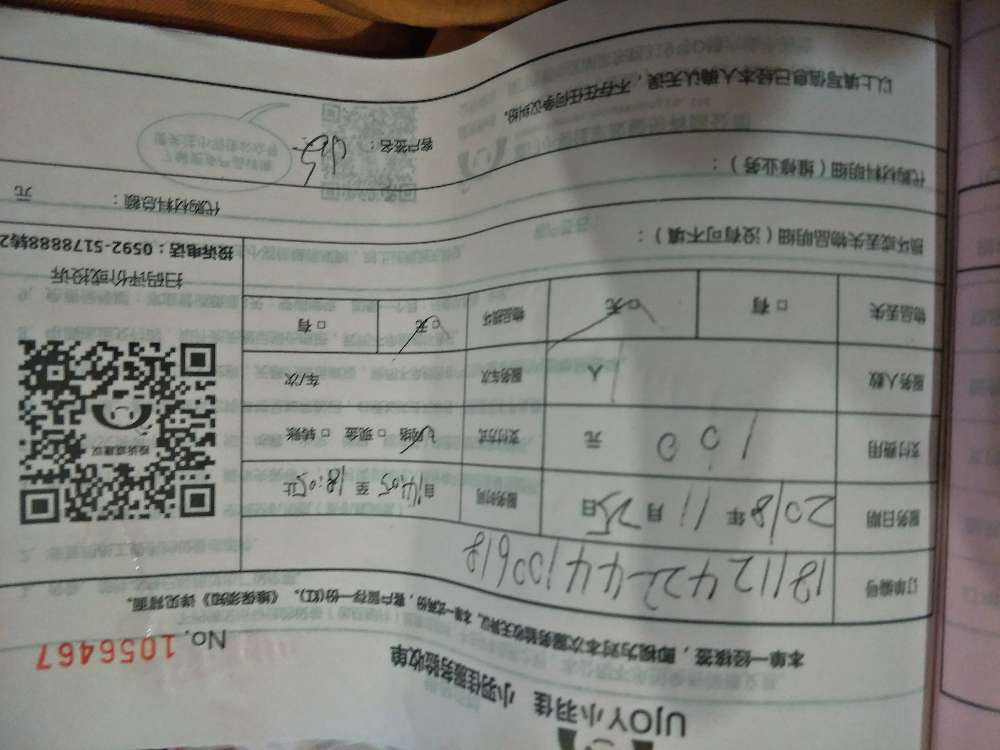 UJOY小羽佳 小羽佳服务验收单
No. 1056467
本单一经核签，即视为对本次服务验收无异议。本单一式两份，客户留存一份(红)。《维保须知》详见背面。
订单编号
服务日期 2018 年 11 月 25 日 服务时间 自 14:05 至 18:05 止
支付费用 100 元 支付方式 □ 网络 □ 现金 □ 转账
服务人数 1 人 服务车次 车/次
物品丢失 □ 有 □ 无 物品损坏 □ 无 □ 有
投诉或建议
扫码评价或投诉
投诉电话：0592-5178888转2
损坏或丢失物品明细（没有可不填）：
代购材料明细（维修业务）：
代购材料总额： 元
以上填写信息已经本人确认无误，不存在任何争议纠纷。
客户签名：